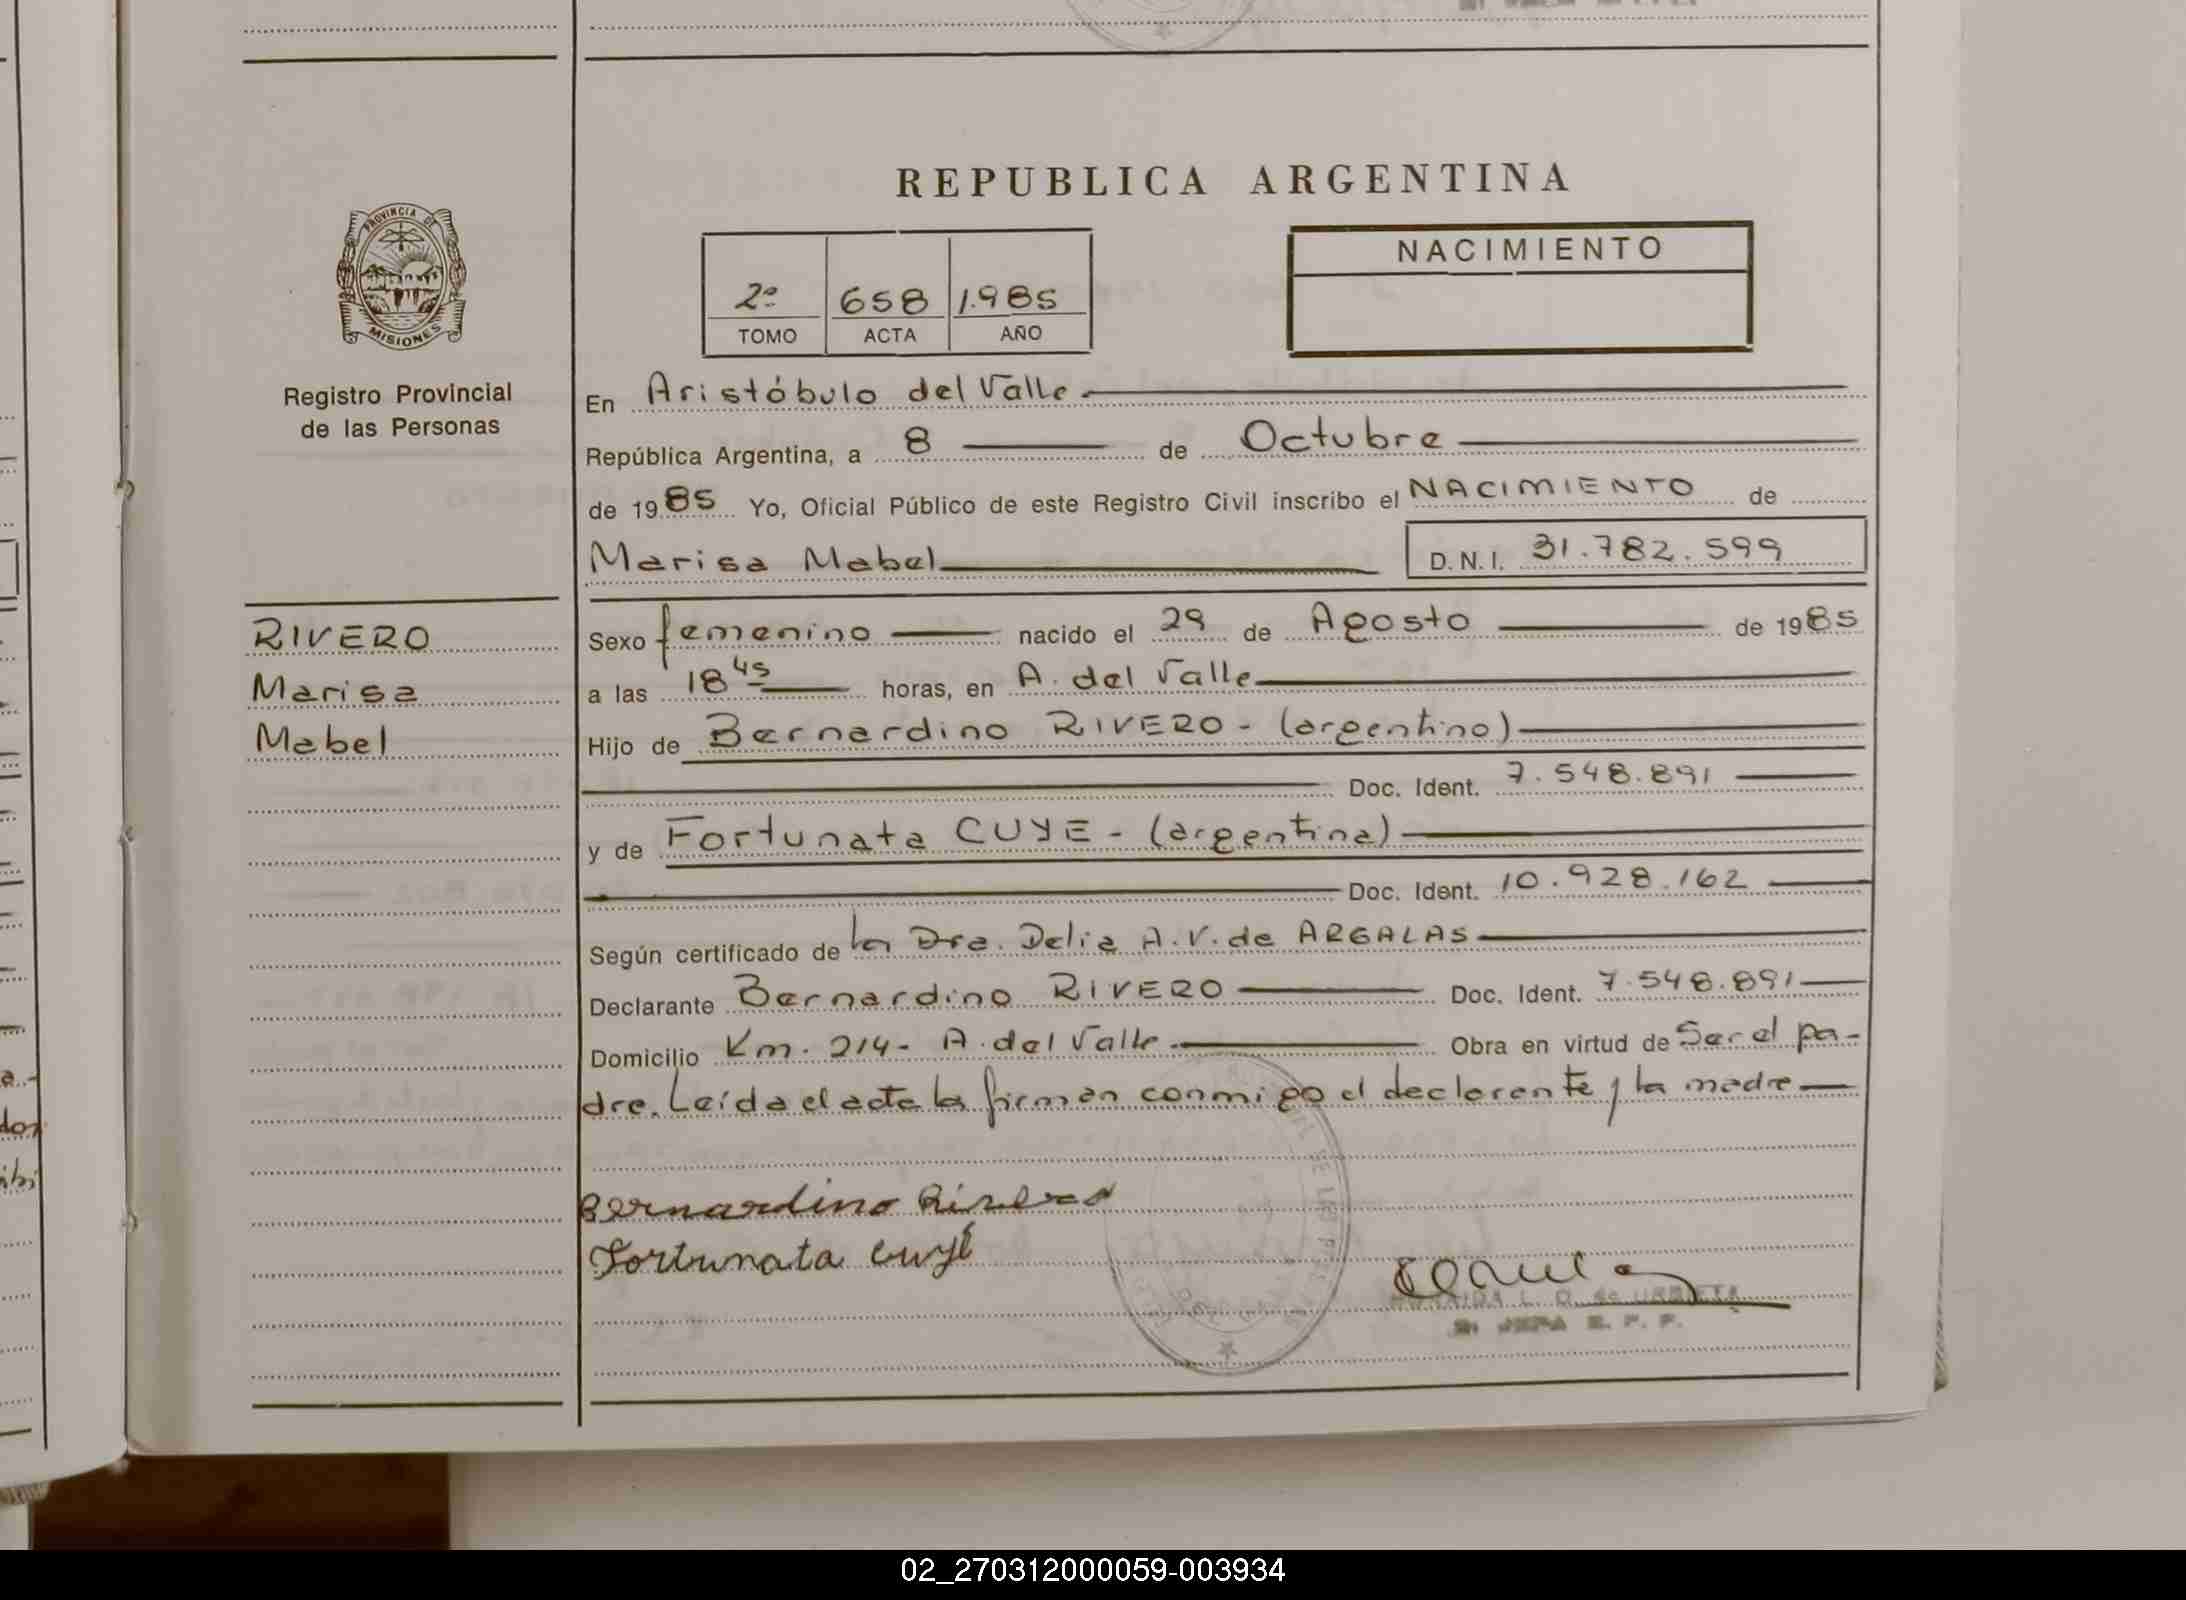 REPUBLICA ARGENTINA
PROVINCIA DE
MISIONES
Registro Provincial
de las Personas
2º 658 1.985
TOMO ACTA AÑO
NACIMIENTO
En Aristóbulo del Valle
República Argentina, a 8 de Octubre
de 1985 Yo, Oficial Público de este Registro Civil inscribo el NACIMIENTO de
Marisa Mabel D.N.I. 31.782.599
RIVERO
Marisa
Mabel
Sexo femenino nacido el 29 de Agosto de 1985
a las 18 45 horas, en A. del Valle
Hijo de Bernardino RIVERO - (argentino)
Doc. Ident. 7.548.891
y de Fortunata CUYE - (argentina)
Doc. Ident. 10.928.162
Según certificado de la Dra. Delia A.V. de ARGALAS
Declarante Bernardino RIVERO Doc. Ident. 7.548.891
Domicilio Km. 214 - A. del Valle Obra en virtud de Ser el pa-
dre. Leída el acta la firman conmigo el declarante y la madre
Bernardino Rivero
Fortunata Cuyé
L. D. de URBIETA
JEFA
02_270312000059-003934